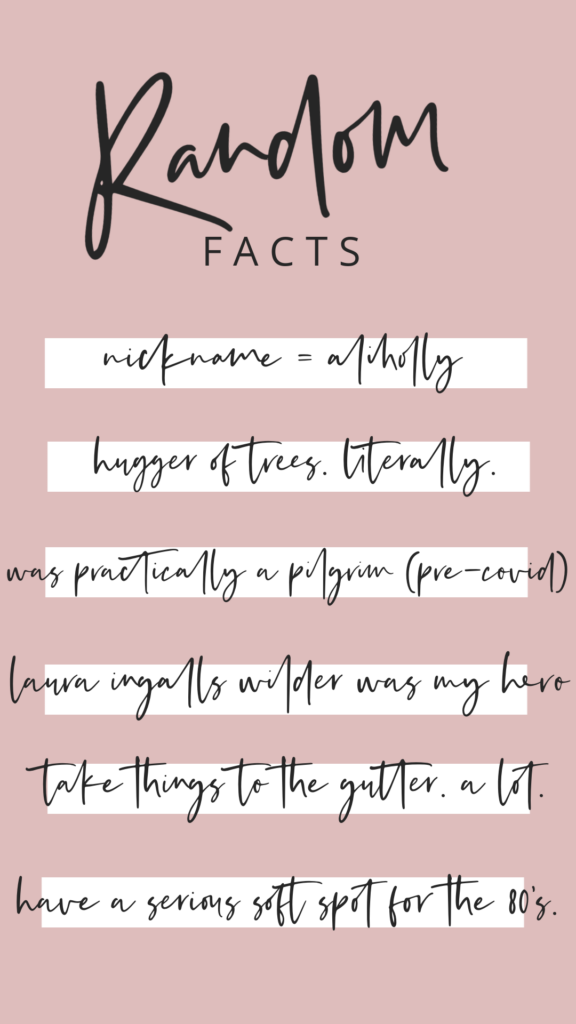 Random
FACTS
nickname = aliholly
hugger of trees. literally.
was practically a pilgrim (pre-covid)
laura ingalls wilder was my hero
take things to the gutter. a lot.
have a serious soft spot for the 80's.